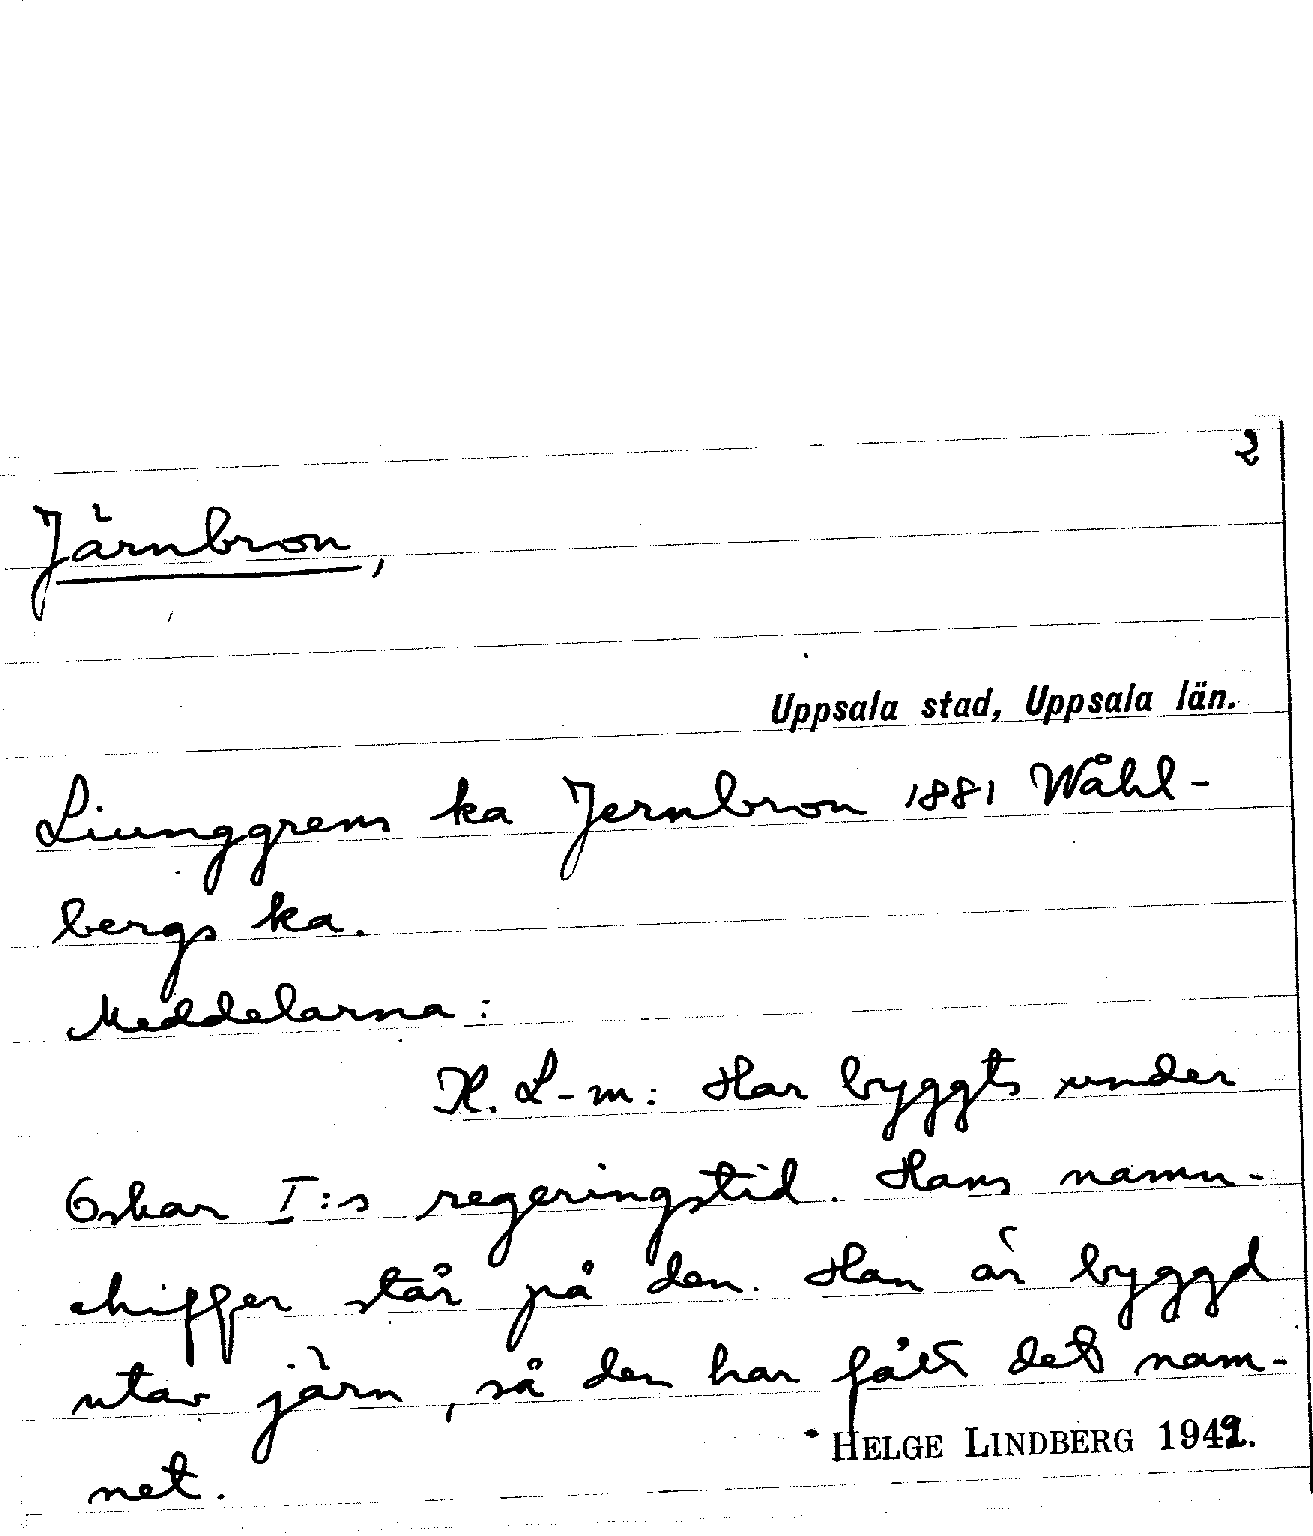 2
Järnbron,
Uppsala stad, Uppsala län.
Ljunggrens ka Jernbron 1881 Wåhl-
bergs ka.
Meddelarna:
K. L-m: Har byggts under
Oskar I:s regeringstid. Hans namn-
chiffer står på den. Han är byggd
utav järn, så den har fått det nam-
net.
HELGE LINDBERG